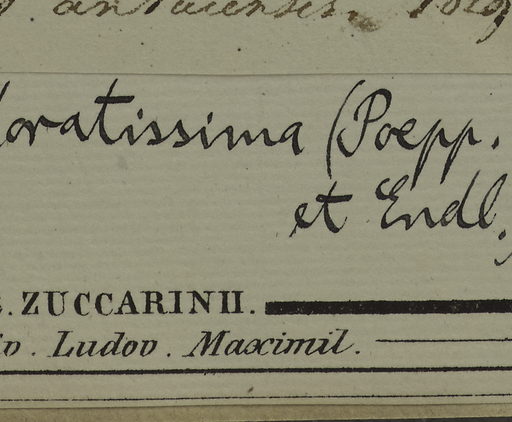 antucensis. 1829
oratissima (Poepp.
et Endl.
. ZUCCARINII.
. Ludov. Maximil.